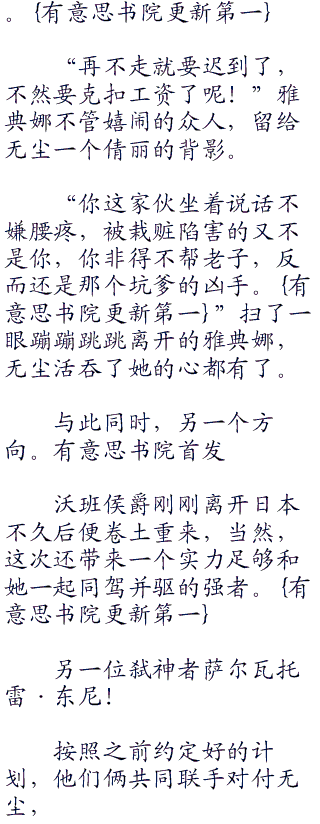 。{有意思书院更新第一}
“再不走就要迟到了，
不然要克扣工资了呢！”雅
典娜不管嬉闹的众人，留给
无尘一个倩丽的背影。
“你这家伙坐着说话不
嫌腰疼，被栽赃陷害的又不
是你，你非得不帮老子，反
而还是那个坑爹的凶手。{有
意思书院更新第一}”扫了一
眼蹦蹦跳跳离开的雅典娜，
无尘活吞了她的心都有了。
与此同时，另一个方
向。有意思书院首发
沃班侯爵刚刚离开日本
不久后便卷土重来，当然，
这次还带来一个实力足够和
她一起同驾并驱的强者。{有
意思书院更新第一}
另一位弑神者萨尔瓦托
雷·东尼！
按照之前约定好的计
划，他们俩共同联手对付无
尘，